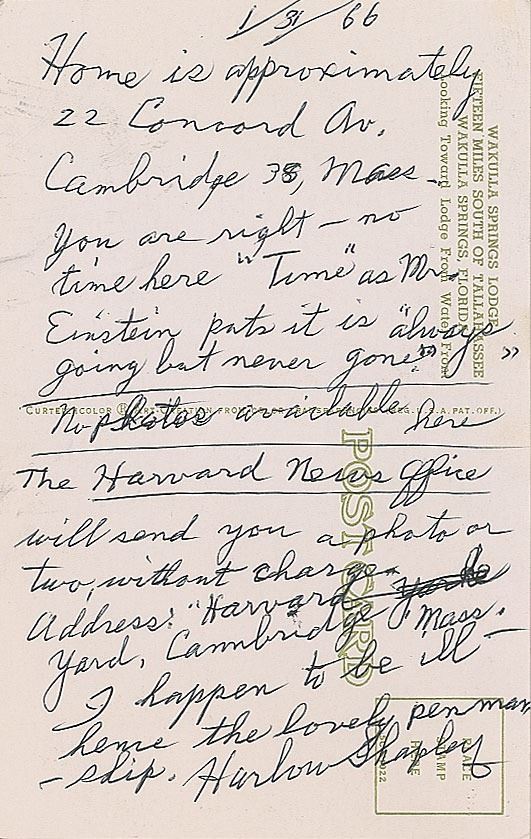 1/31/66
Home is approximately
22 Concord Av.
Cambridge 38, Mass.
You are right – no
time here "Time" as Mr.
Einstein puts it is "always
going but never gone"
No photos available here
The Harvard News Office
will send you a photo or
two, without charge.
Address: "Harvard
Yard, Cannbridge Mass.
I happen to be ill –
hence the lovely penman
– ship. Harlow Shapley
WAKULLA SPRINGS LODGE
FIFTEEN MILES SOUTH OF TALLAHASSEE
WAKULLA SPRINGS, FLORIDA
Looking Toward Lodge From Water Front
POST CARD
PLACE
STAMP
HERE